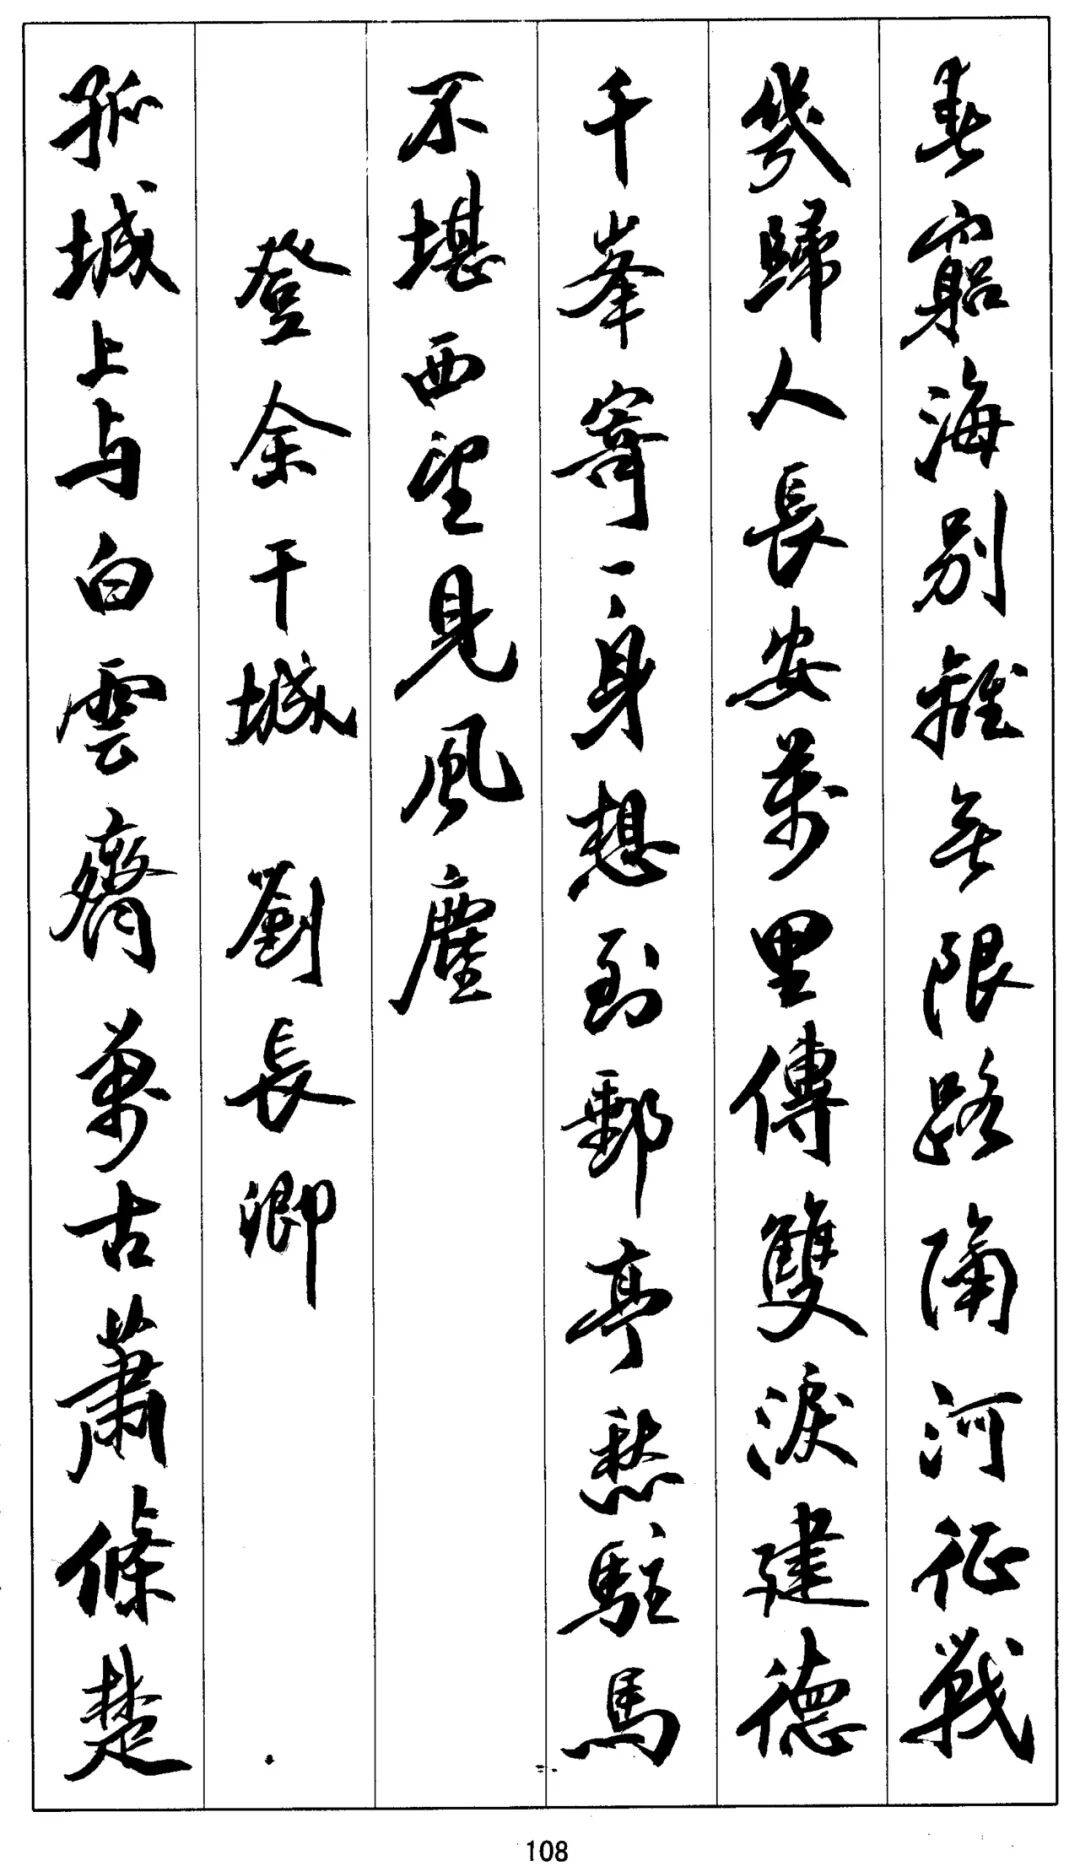 春窮海別離無限路隔河征戰
幾歸人長安萬里傳雙淚建德
千峯寄一身想到郵亭愁駐馬
不堪西望見風塵
登余干城 劉長卿
孤城上与白雲齊萬古蕭條楚
108